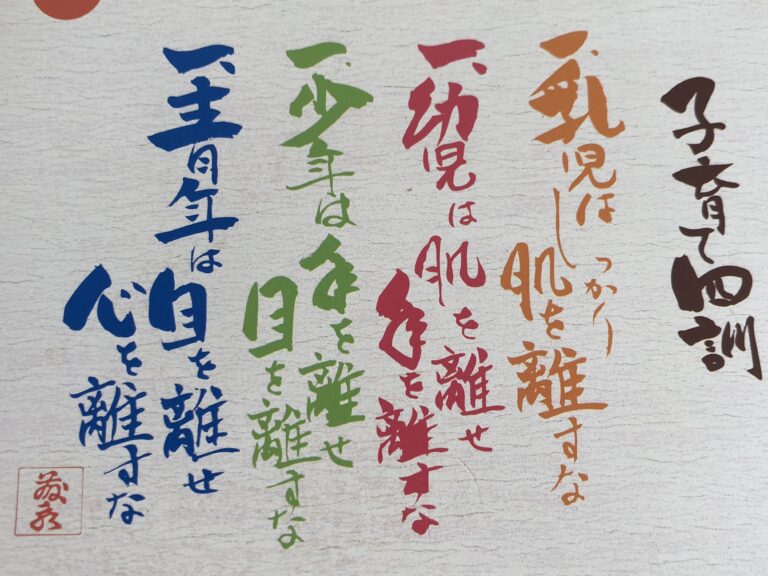 子育て四訓
一、乳児はしっかり
肌を離すな
一、幼児は肌を離せ
手を離すな
一、少年は手を離せ
目を離すな
一、青年は目を離せ
心を離すな